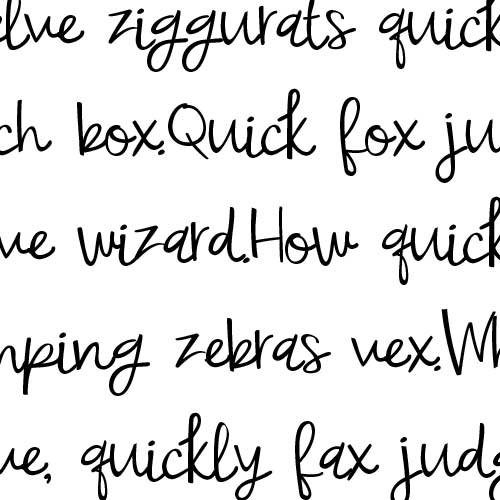 elve ziggurats quick
ch box.Quick fox ju
ve wizard.How quick
mping zebras vex.Wh
ve, quickly fax judg